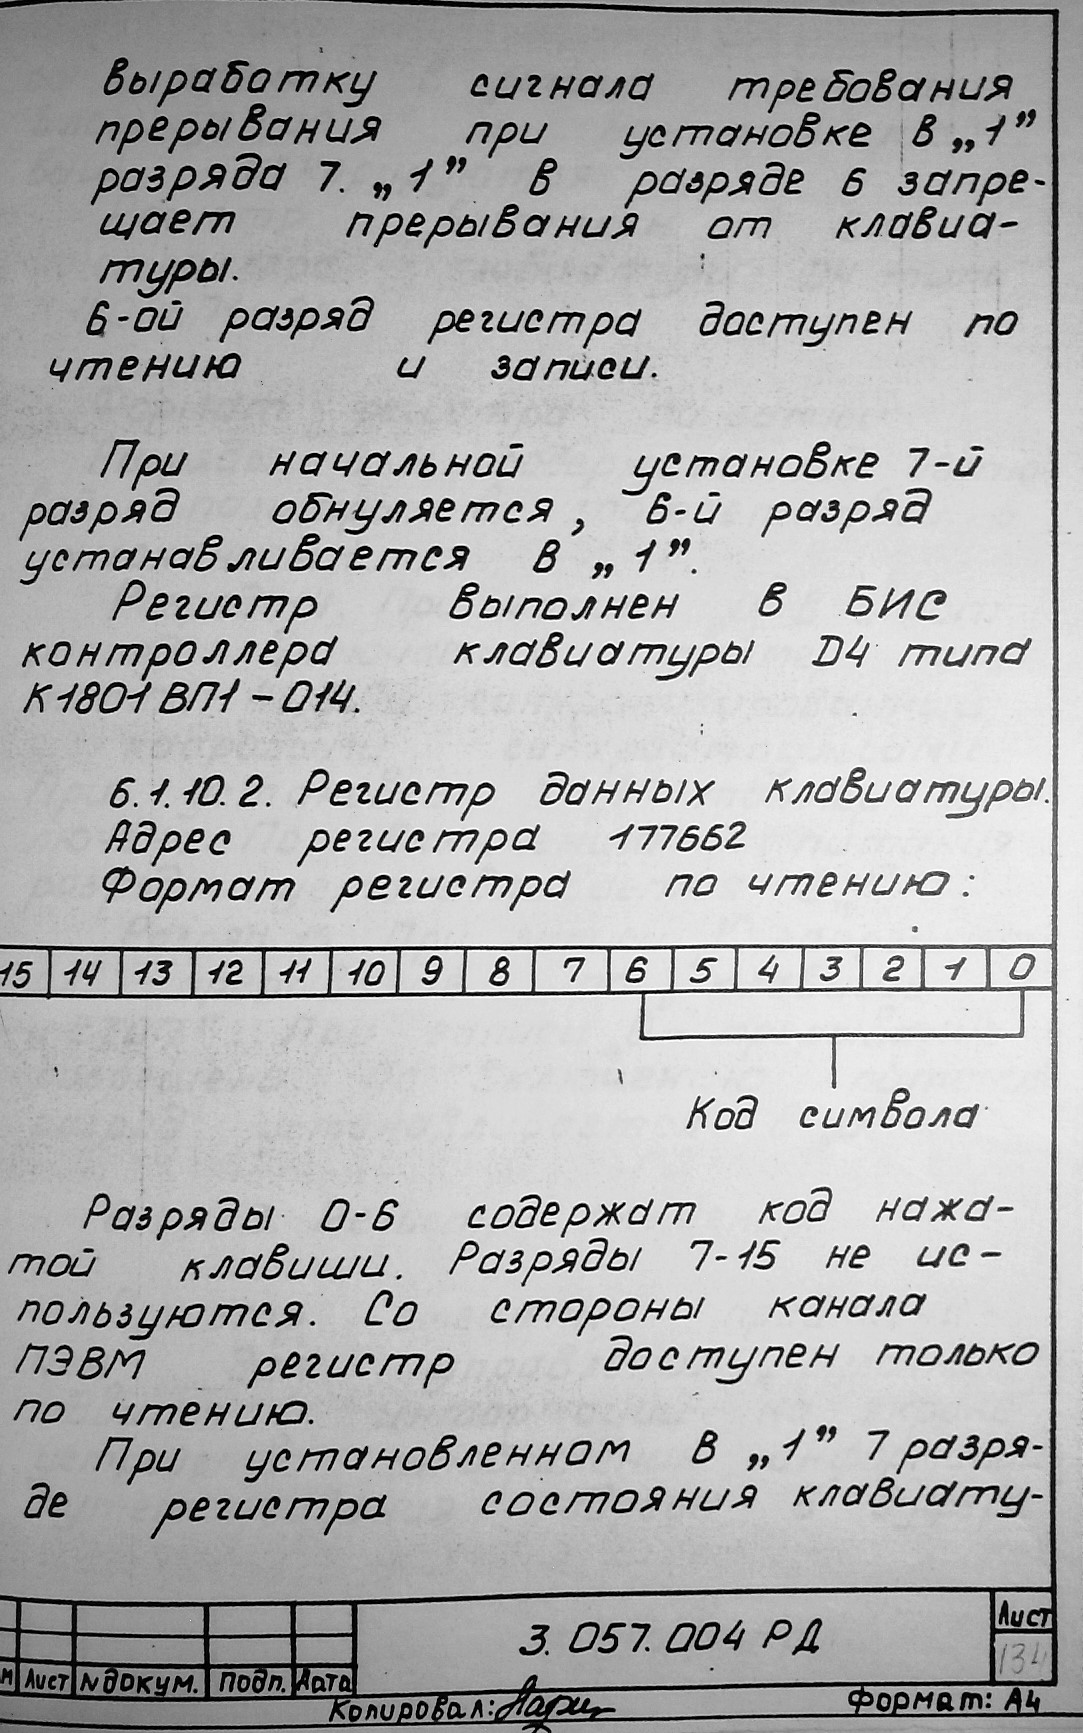 выработку сигнала требования
прерывания при установке в „1”
разряда 7. „1” в разряде 6 запре-
щает прерывания от клавиа-
туры.
6-ой разряд регистра доступен по
чтению и записи.
При начальной установке 7-й
разряд обнуляется, 6-й разряд
устанавливается в „1”.
Регистр выполнен в БИС
контроллера клавиатуры D4 типа
К1801ВП1-014.
6.1.10.2. Регистр данных клавиатуры.
Адрес регистра 177662
Формат регистра по чтению:
15 14 13 12 11 10 9 8 7 6 5 4 3 2 1 0
Код символа
Разряды 0-6 содержат код нажа-
той клавиши. Разряды 7-15 не ис-
пользуются. Со стороны канала
ПЭВМ регистр доступен только
по чтению.
При установленном в „1” 7 разря-
де регистра состояния клавиату-
3.057.004 РД
Лист
134
м Лист № докум. Подп. Дата
Копировал:
Формат: А4